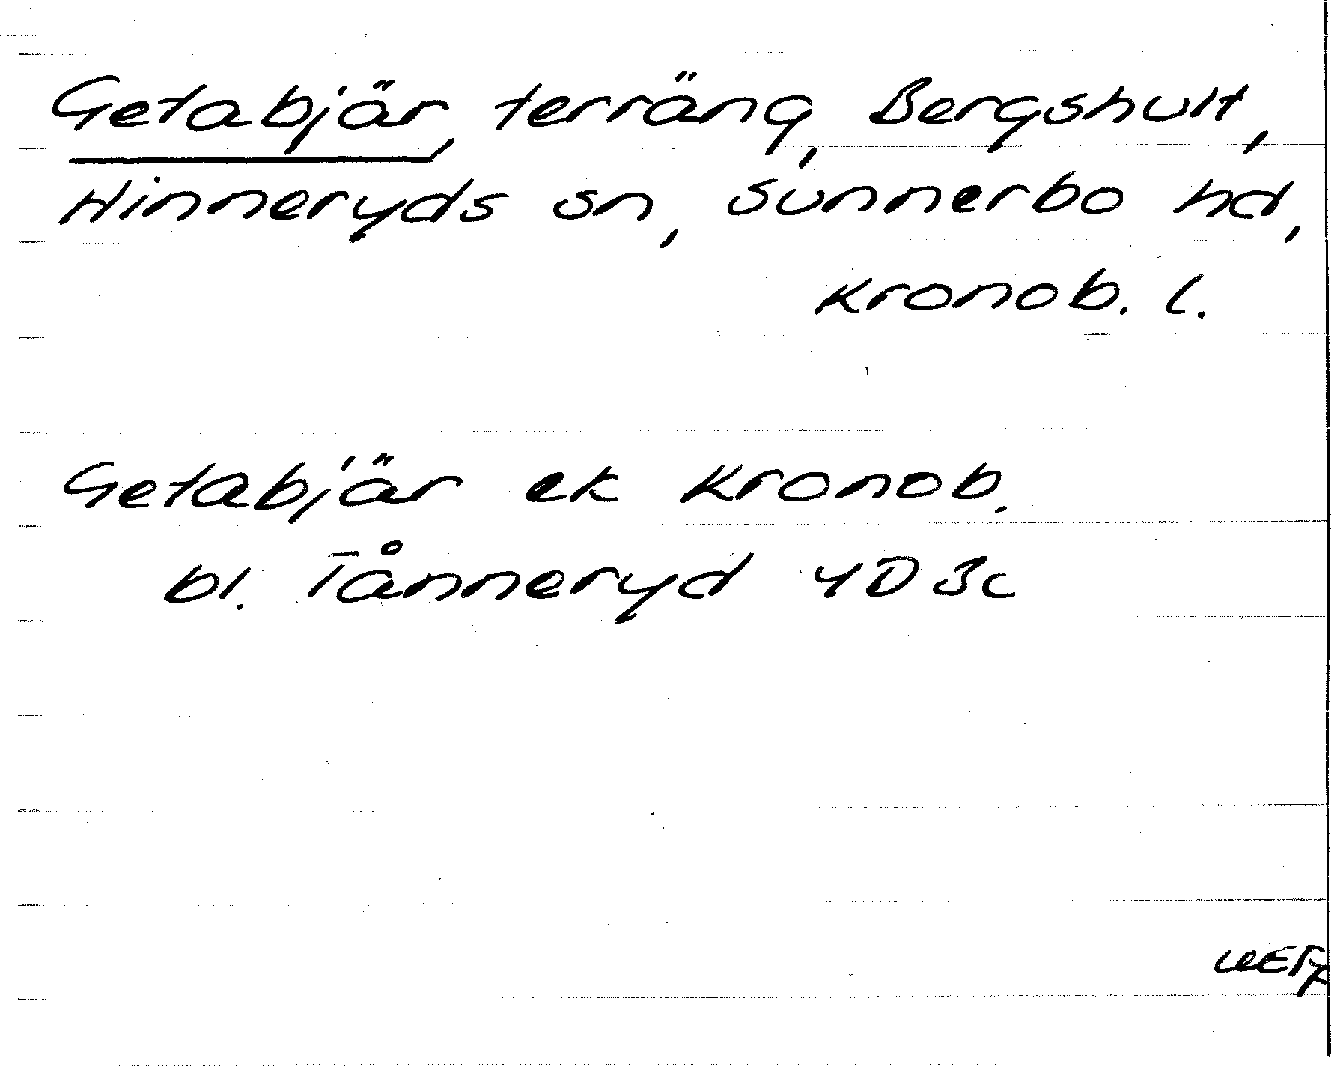 Getabjär, terräng, Bergshult,
Hinneryds sn, Sunnerbo hd,
Kronob. l.
Getabjär ek Kronob.
bl. Tånneryd 4D 3c